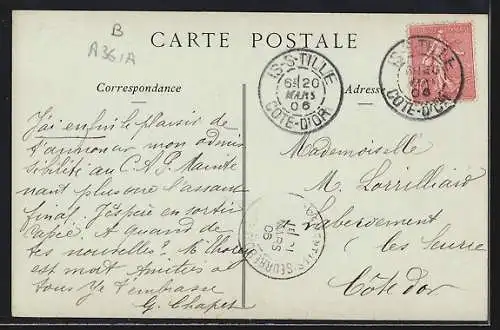 B
A361A
CARTE POSTALE
Correspondance
Adresse
IS-S-TILLE
6E 20
MARS
06
COTE-D'OR
IS-S-TILLE
MARS
06
COTE-D'OR
J'ai enfin le plaisir de
t'annoncer mon admis
sibilité au C.A.P. Mainte
nant plus que l'assaut
final. J'espère en sortir
A quand de
tes nouvelles? Mr
est mort Amitiés à
tous Je t'embrasse
G. Chapet
Mademoiselle
M. Lorrilliard
à Labergement
les Seurre
Côte d'or
21
MARS
06